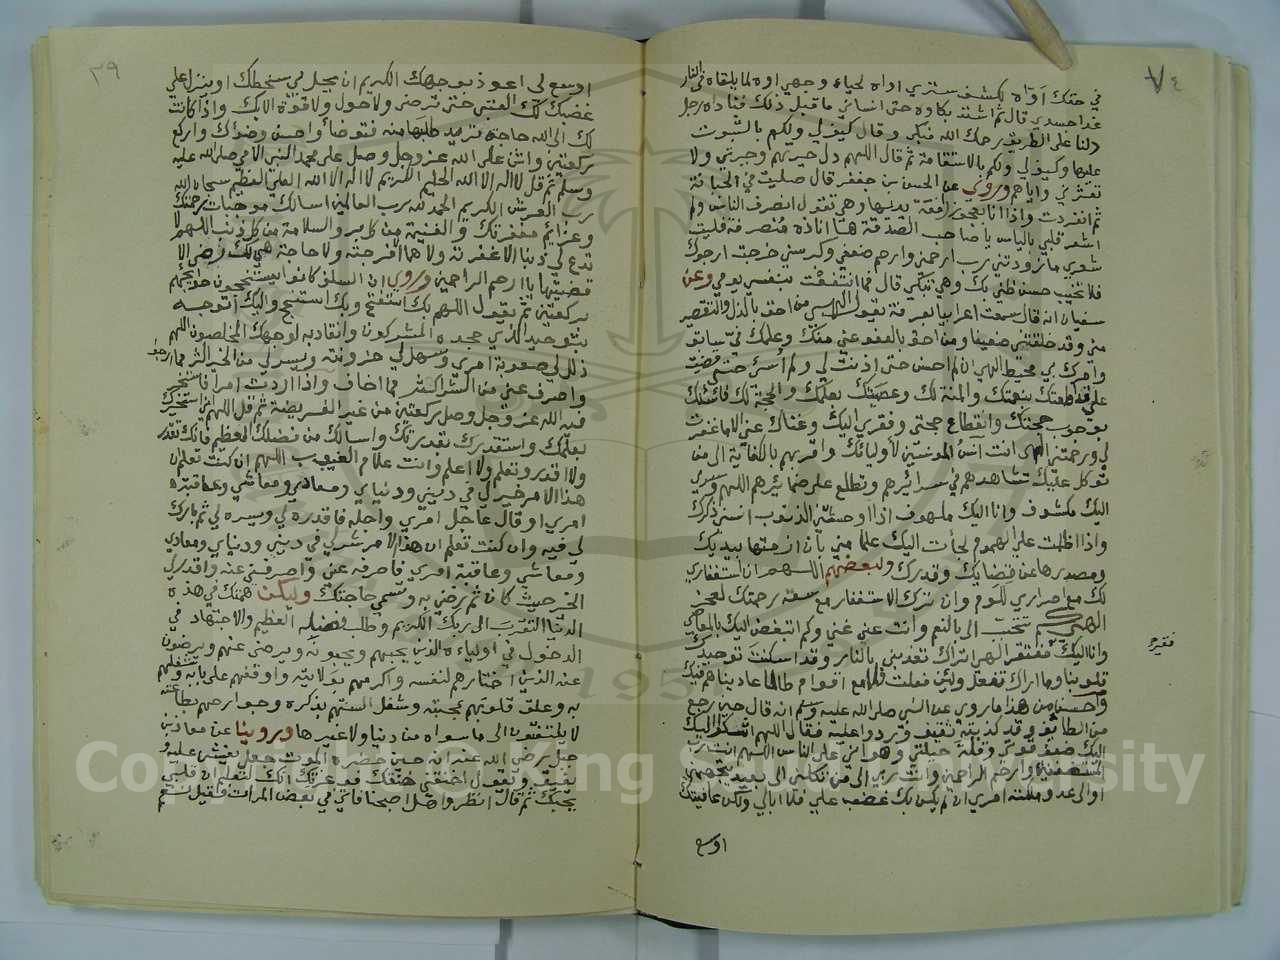 ٧٤
في حقك اواه لكشف ستري اواه لحياء وجهي اوه لما يلقاه في النار
غدا جسدي قال ثم اشتد بكاوه حتى انساني ما قبل ذلك فناداه رجل
دلنا على الطريق رحمك الله فبكى وقال كيف لي ولكم بالثبوت
عليها وكيف لي ولكم بالاستقامة ثم قال اللهم دل حيرتهم وجبرتي ولا
تفترني واياهم وروي عن الحسن بن جعفر قال صليت في الجبانة
ثم انفردت واذا انا بعجوز رافعة يديها وهي تقول انصرف الناس ولم
اشعر قلبي بالياس يا صاحب الصدقة ها انا ذه منصرفة فليت
شعري ما زودتني رب ارحمني وارحم ضعفي وكبر سني خرجت ارجوك
فلا تخيب حسن ظني بك وهي تبكي قال فما انتفعت بنفسي يومي وعن
سفيان انه قال سمعت اعرابيا بعرفة يقول الهي من احق بالذل والتقصير
مني وقد خلقتني ضعيفا ومن احق بالعفو عني منك وعلمك في سابق
وامرك بي محيط الهي ان لم احسن حتى اذنت لي ولم أسئ حتى قضيت
علي قد اطعتك بنعمتك والمنة لك وعصيتك بعلمك والحجة لك فاسئلك
بوجوب حجتك وانقطاع حجتي وفقري اليك وغناك عني الا ما غفرت
لي ورحمتني الهي انت آنس المونسين لأوليائك واقربهم بالكفاية الى من
توكل عليك تشاهدهم في سرائرهم وتطلع على ضمائرهم اللهم وسري
اليك مكشوف وانا اليك ملهوف اذا اوحشتني الذنوب انسني ذكرك
واذا اظلمت علي الهموم لجأت اليك علما مني بأن ازمتها بيديك
ومصدرها عن قضايك وقدرك ولبعضهم اللهم ان استغفاري
لك مع اصراري للؤم وان تركي الاستغفار مع سعة رحمتك لعجز
الهي كم تتحبب الي بالنعم وانت عني غني وكم اتبغض اليك بالمعاصي
وانا اليك مفتقر الهي اتراك تعذبني بالنار وقد اسكنت توحيدك
فقير
قلوبنا وما اراك تفعل ولئن فعلت فلا مع اقوام طالما عاديناهم فيك
واحسن من هذا ما روي عن النبي صلى الله عليه وسلم انه قال حين رجع
من الطائف وقد كذبته ثقيف وردوا عليه فقال اللهم اشكو اليك
اليك ضعف قوتي وقلة حيلتي وهواني على الناس اللهم انت رب
المستضعفين وارحم الراحمين وانت ربي الى من تكلني الى بعيد يتجهمني
او الى عدو ملكته امري ان لم يكن بك غضب علي فلا ابالي ولكن عافيتك
اوسع
٣٩
اوسع لي اعوذ بوجهك الكريم ان يحل بي سخطك او ينزل علي
غضبك لك العتبى حتى ترضى ولا حول ولا قوة الا بك واذا كانت
لك الى الله حاجة تريد طلبها منه فتوضأ واحسن وضوءك واركع
ركعتين واثن على الله عز وجل وصل على محمد النبي الامي صلى الله عليه
وسلم ثم قل لا اله الا الله الحليم الكريم لا اله الا الله العلي العظيم سبحان الله
رب العرش الكريم الحمد لله رب العالمين اسالك موجبات رحمتك
وعزايم مغفرتك والغنيمة من كل بر والسلامة من كل ذنب اللهم
لا تدع لي ذنبا الا غفرته ولا هما الا فرجته ولا حاجة هي لك رضى الا
قضيتها يا ارحم الراحمين وروي ان السلف كانوا يستنجحون حوايجهم
بركعتين ثم يقول اللهم بك استفتح وبك استنجح واليك اتوجه
بتوحيد الذي جحده المشركون وانقاد به لوجهك المخلصون اللهم
ذلل لي صعوبة امري وسهل لي حزونته ويسر لي من الخير اكثر مما ارجو
واصرف عني من الشر اكثر مما اخاف واذا اردت امرا فاستخير
فيه الله عز وجل وصل ركعتين من غير الفريضة ثم قل اللهم اني استخيرك
بعلمك واستقدرك بقدرتك واسالك من فضلك العظيم فانك تقدر
ولا اقدر وتعلم ولا اعلم وانت علام الغيوب اللهم ان كنت تعلم ان
هذا الامر خير لي في ديني ودنياي ومعادي ومعاشي وعاقبة
امري او قال عاجل امري واجله فاقدره لي ويسره لي ثم بارك
لي فيه وان كنت تعلم ان هذا الامر شر لي في ديني ودنياي ومعادي
ومعاشي وعاقبة امري فاصرفه عني واصرفني عنه واقدر لي
الخير حيث كان ثم رضني به وتسمي حاجتك وليكن همتك في هذه
الدنيا التقرب الى ربك الكريم وطلب فضله العظيم والاجتهاد في
الدخول في اولياءه الذين يحبهم ويحبونه ويرضى عنهم ويرضون
عنه الذين اختارهم لنفسه واكرمهم بولايته واوقفهم على بابه وشغلهم
به وعلق قلوبهم بمحبته وشغل السنتهم بذكره وجوارحهم بطاعته
لا يلتفتون الى ما سواه من دنيا ولا غيرها وروينا عن معاذ بن
جبل رضي الله عنه انه حين حضره الموت جعل يغشى عليه و
يفيق ويقول اخنقني خنقك فوعزتك انك لتعلم ان قلبي
يحبك ثم قال انظروا هل اصبحنا فاتي في بعض المرات فقيل نعم